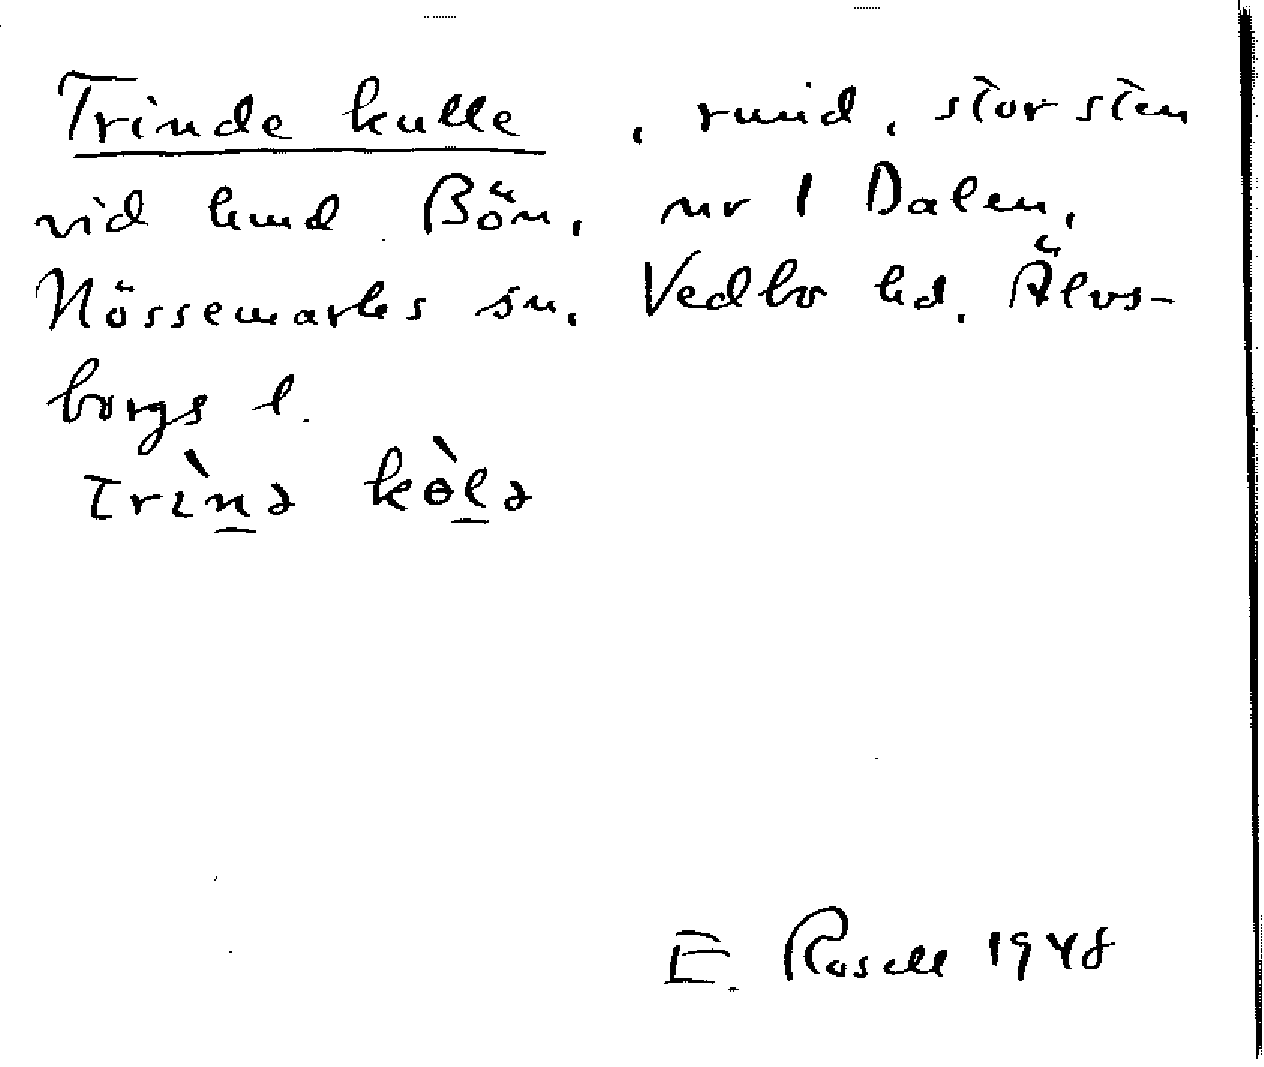 Trinde kulle, rund, stor sten
vid hmd Bön, nr 1 Dalen,
Nössemarks sn, Vedbo hd. Älvs-
borgs l.
trìnə kòlə
E. Rosell 1948